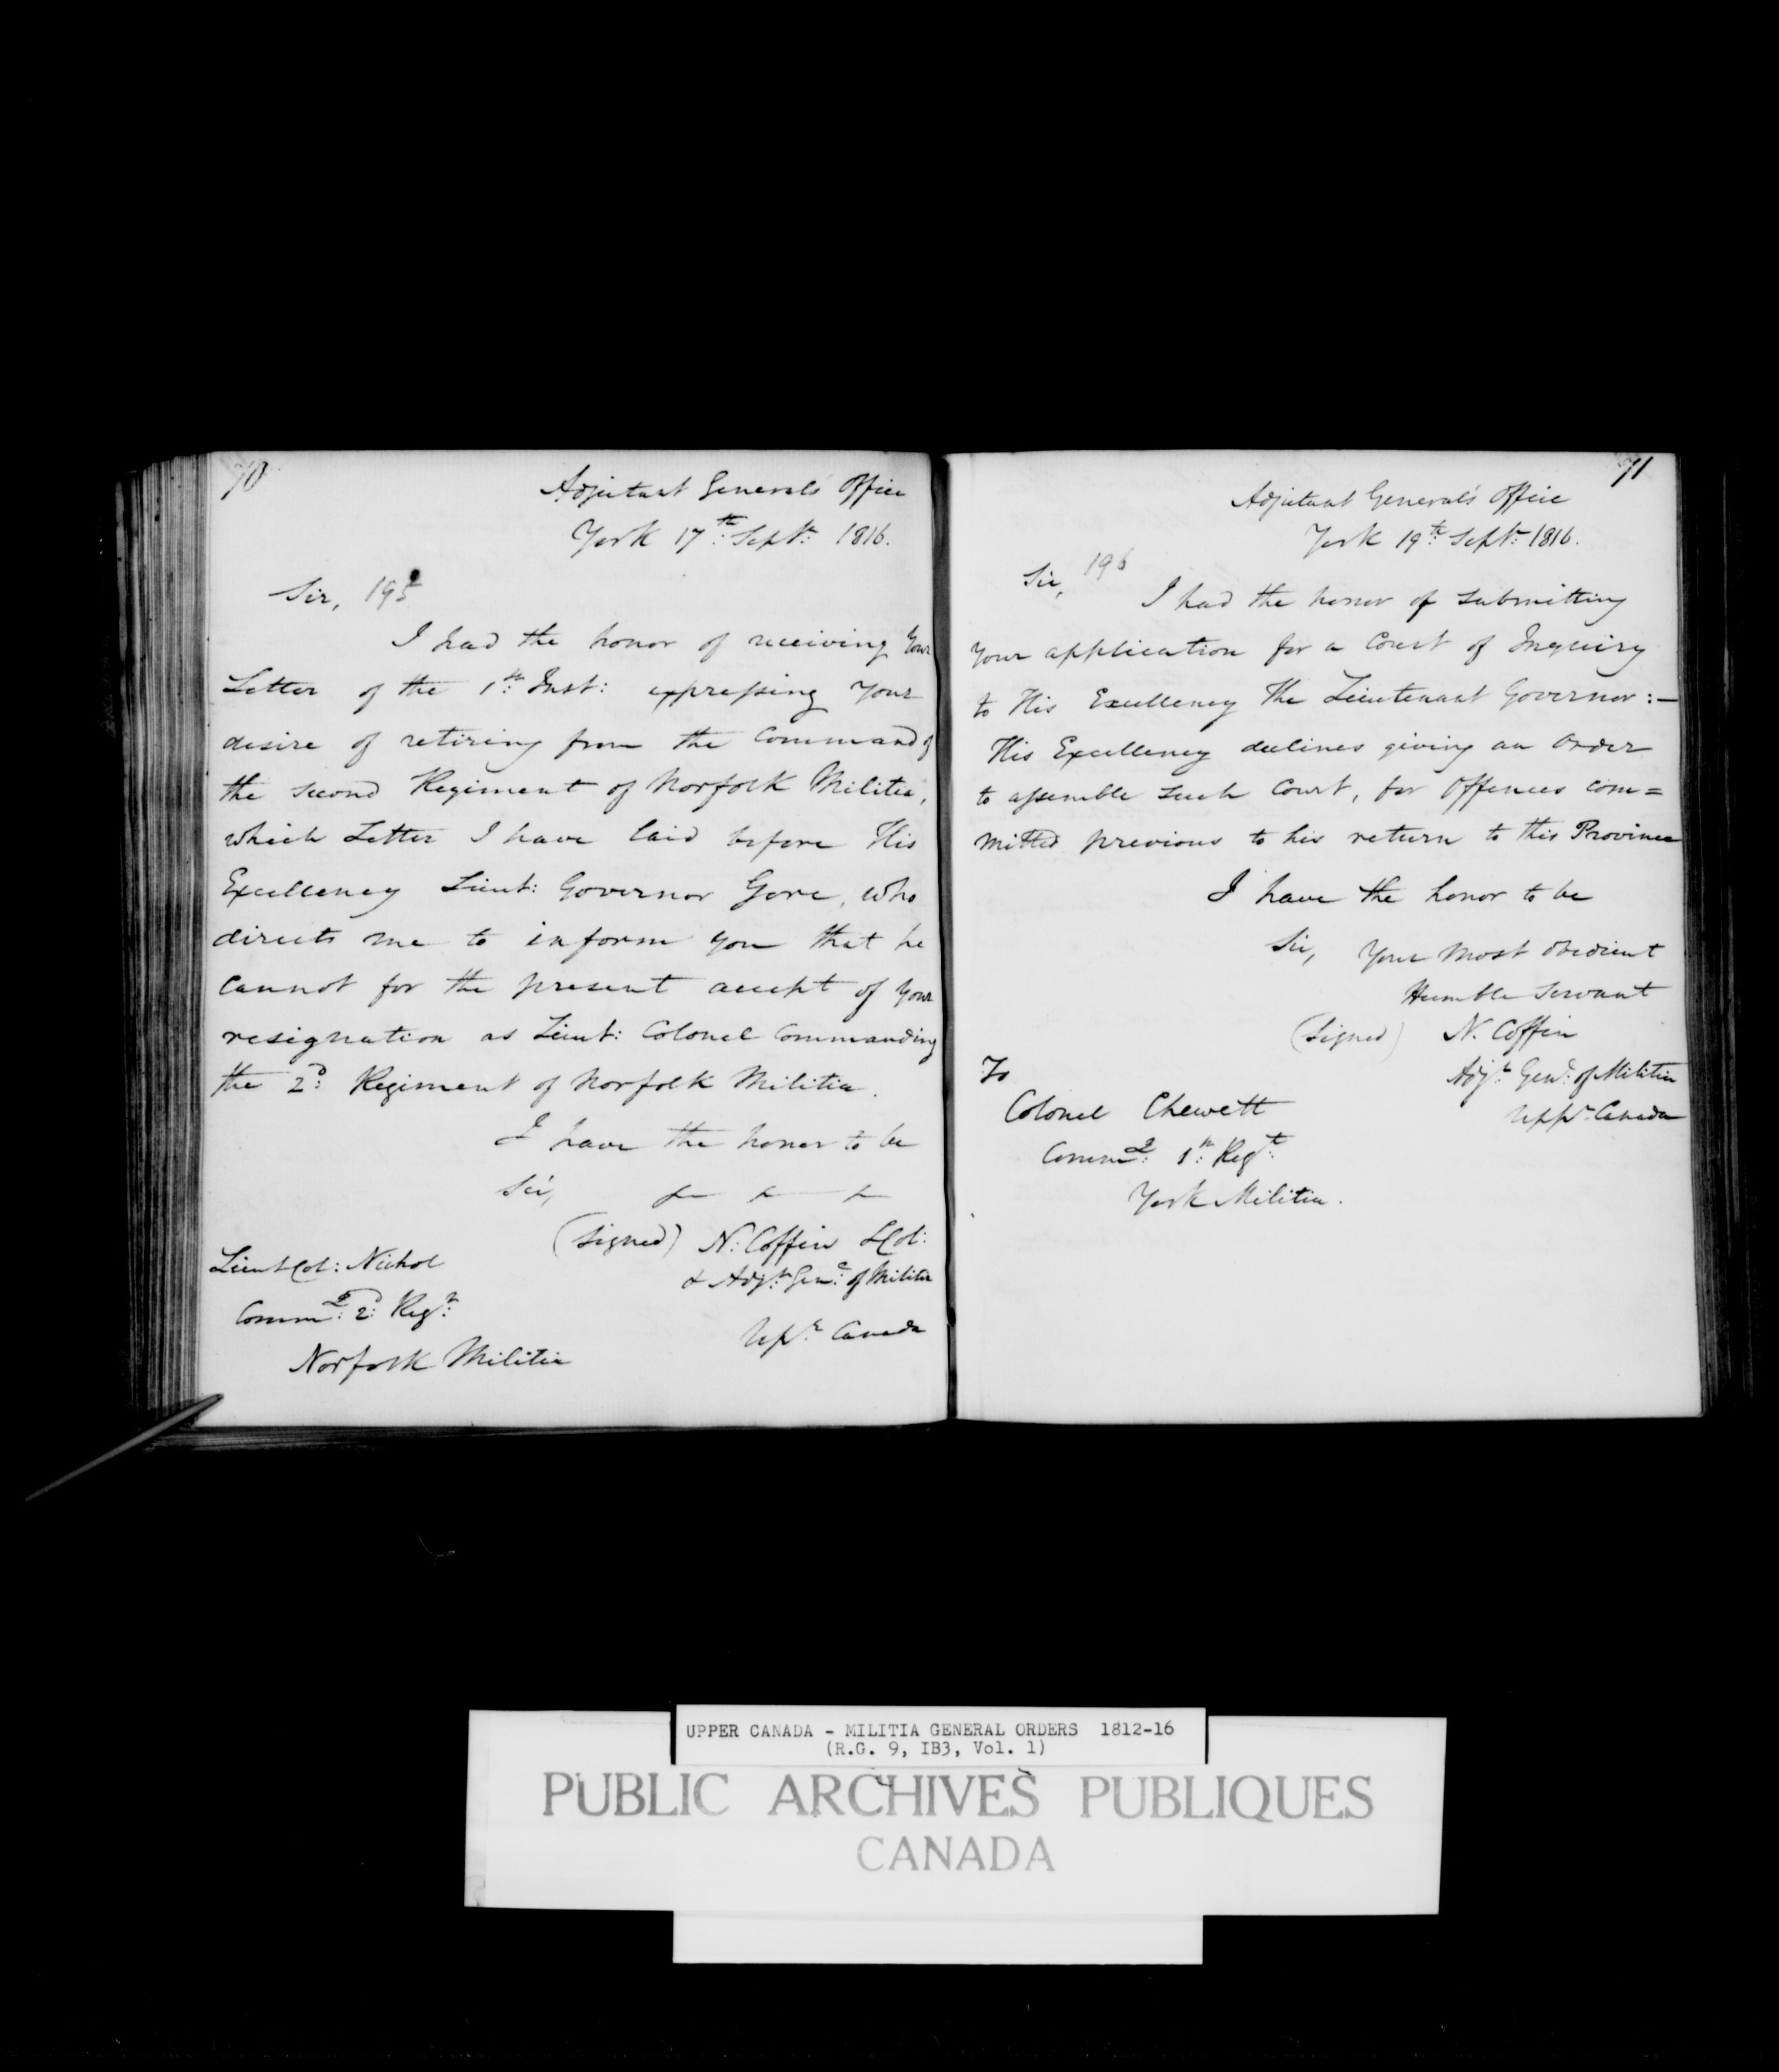 70
Adjutant General's Office
York 17th: Sept: 1816.
Sir, 195
I had the honor of receiving Your
Letter of the 1st: Inst: expressing Your
desire of retiring from the Command of
the second Regiment of Norfolk Militia,
which Letter I have laid before His
Excellency Lieut: Governor Gore, who
directs me to inform you that he
cannot for the present accept of Your
resignation as Lieut: Colonel Commanding
the 2d: Regiment of Norfolk Militia.
I have the honor to be
Sir,
(Signed) N: Coffin LCol:
& Adjt: Genl: of Militia
Upr: Canada
Lieut Col: Nichol
Commg: 2d: Regt:
Norfolk Militia
71
Adjutant General's Office
York 19th: Sept: 1816.
Sir, 196
I had the honor of submitting
Your application for a Court of Inquiry
to His Excellency The Lieutenant Governor:—
His Excellency declines giving an Order
to assemble such Court, for Offences com=
mitted previous to his return to this Province
I have the honor to be
Sir, Your Most Obedient
Humble Servant
(Signed) N. Coffin
Adjt: Genl: of Militia
Uppr: Canada
To
Colonel Chewett
Commg: 1st: Regt:
York Militia.
UPPER CANADA - MILITIA GENERAL ORDERS 1812-16
(R.G. 9, IB3, Vol. 1)
PUBLIC ARCHIVES PUBLIQUES
CANADA